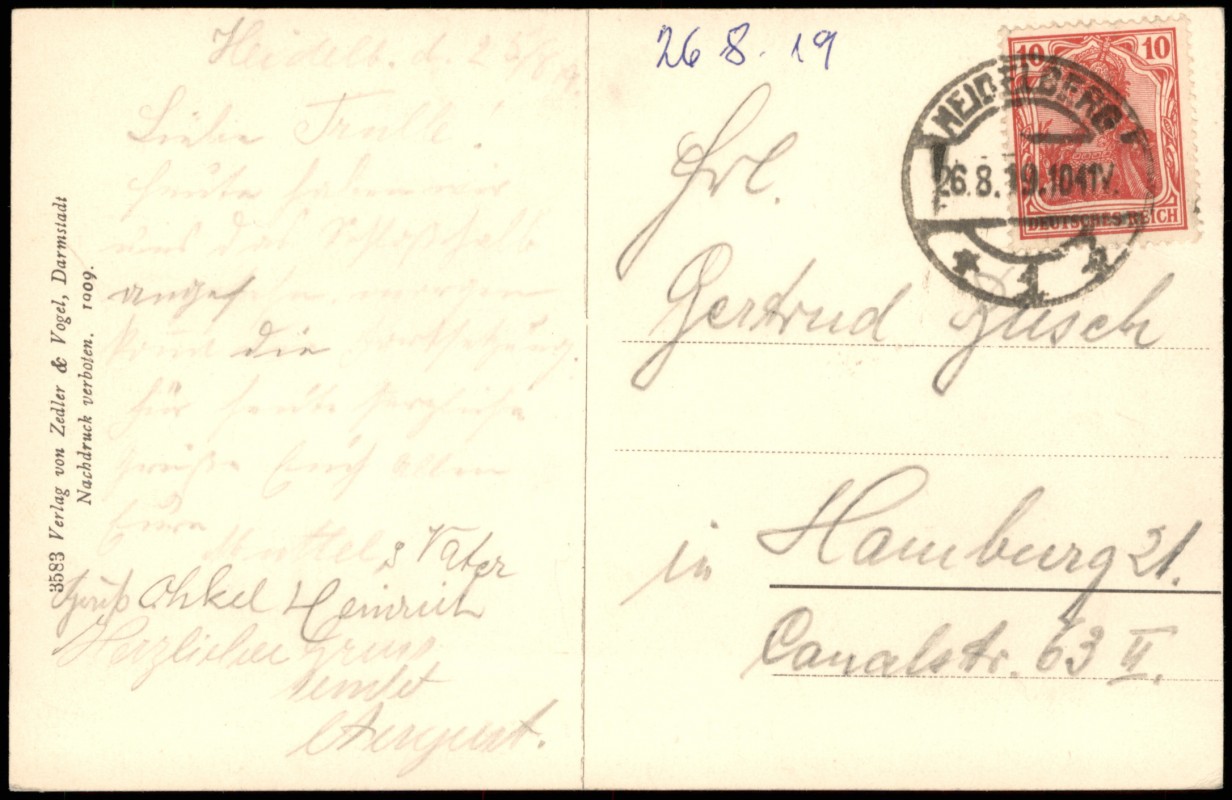 Heidelb. d. 25/8 19
Liebe Trulle!
heute haben wir
uns das Schloss
angesehn, morgen
kommt die Fortsetzung.
Für heute herzliche
Grüße Euch Allen
Eure
Muttel & Vater
Gruß Onkel Heinrich
Herzlichen Gruss
sendet
August.
3583 Verlag von Zedler & Vogel, Darmstadt
Nachdruck verboten. 1909.
26 8. 19
Frl.
Gertrud Busch
in Hamburg 21.
Canalstr. 63 II.
HEIDELBERG
26.8.19.10-11V.
* 1
10 10
DEUTSCHES REICH